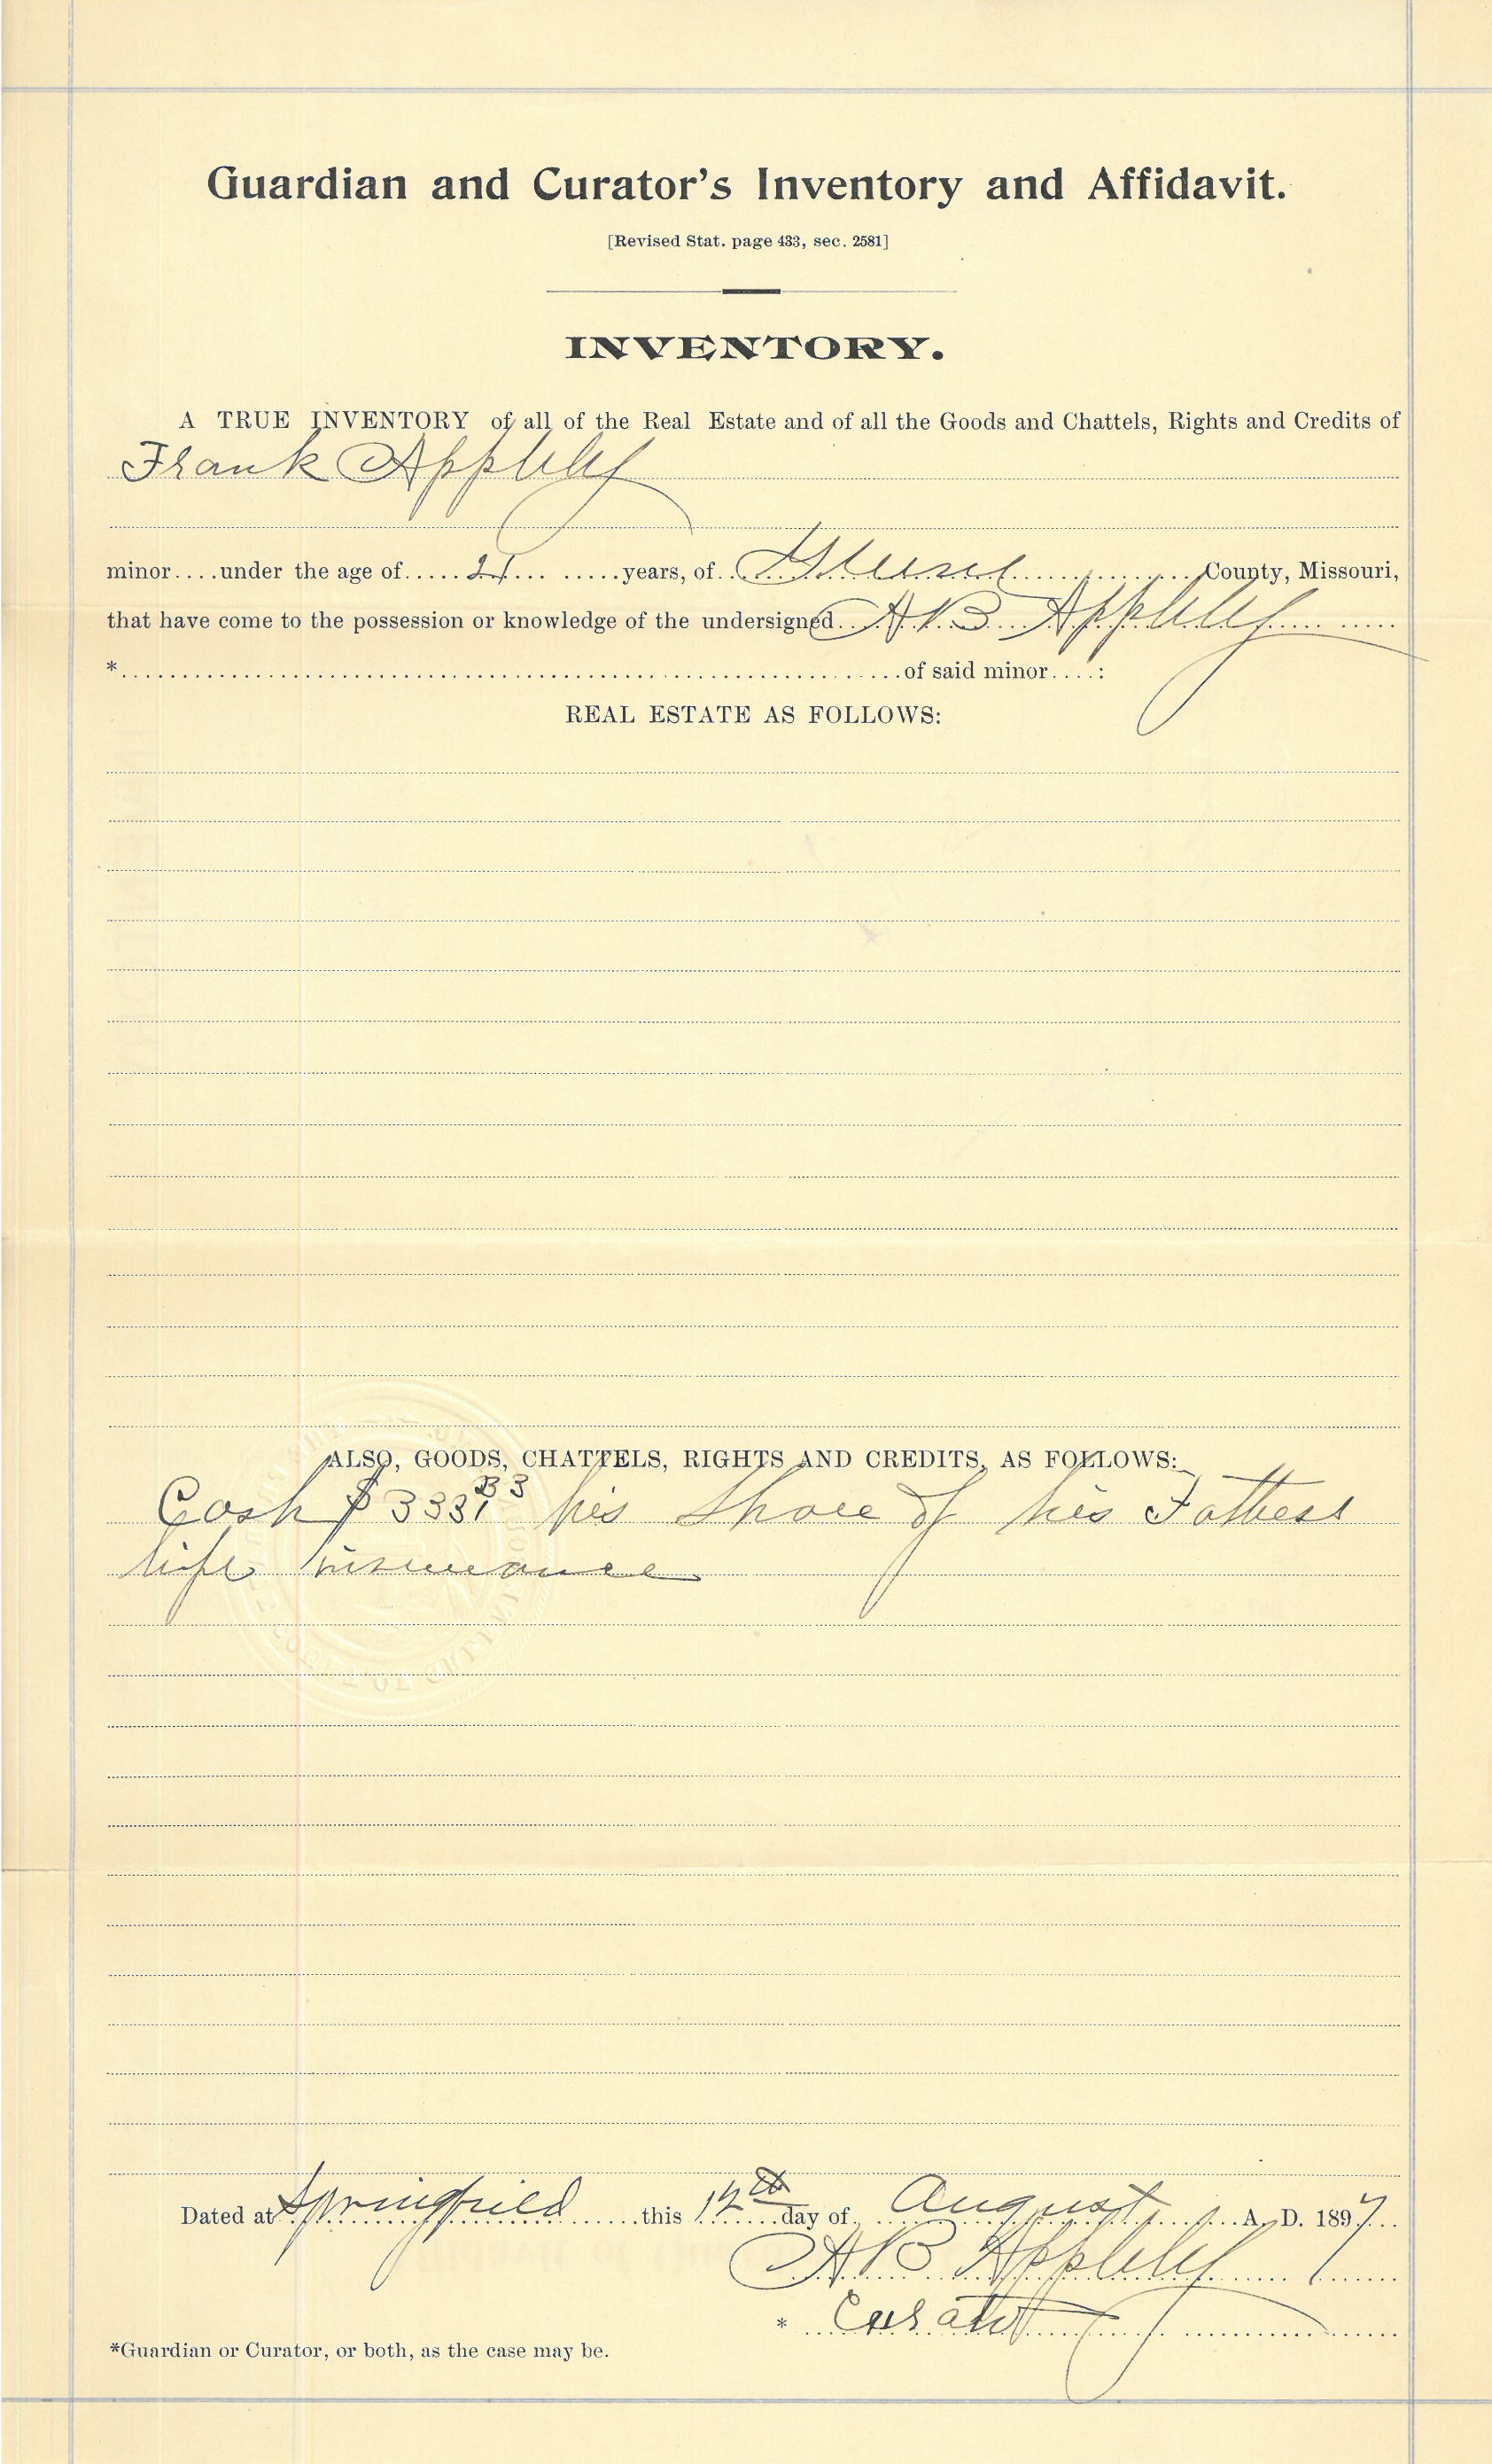 Guardian and Curator's Inventory and Affidavit.
[Revised Stat. page 433, sec. 2581]
INVENTORY.
A TRUE INVENTORY of all of the Real Estate and of all the Goods and Chattels, Rights and Credits of
Frank Appleby
minor....under the age of.....21... .....years, of..Greene.............County, Missouri,
that have come to the possession or knowledge of the undersigned..A B Appleby.... .....
*.............................................................................of said minor....:
REAL ESTATE AS FOLLOWS:
ALSO, GOODS, CHATTELS, RIGHTS AND CREDITS, AS FOLLOWS:
Cash $ 333 33 his share of his Fathers
life insurance
Dated at Springfield......this 12th...day of..August......A. D. 1897...
A B Appleby
* Curator
*Guardian or Curator, or both, as the case may be.